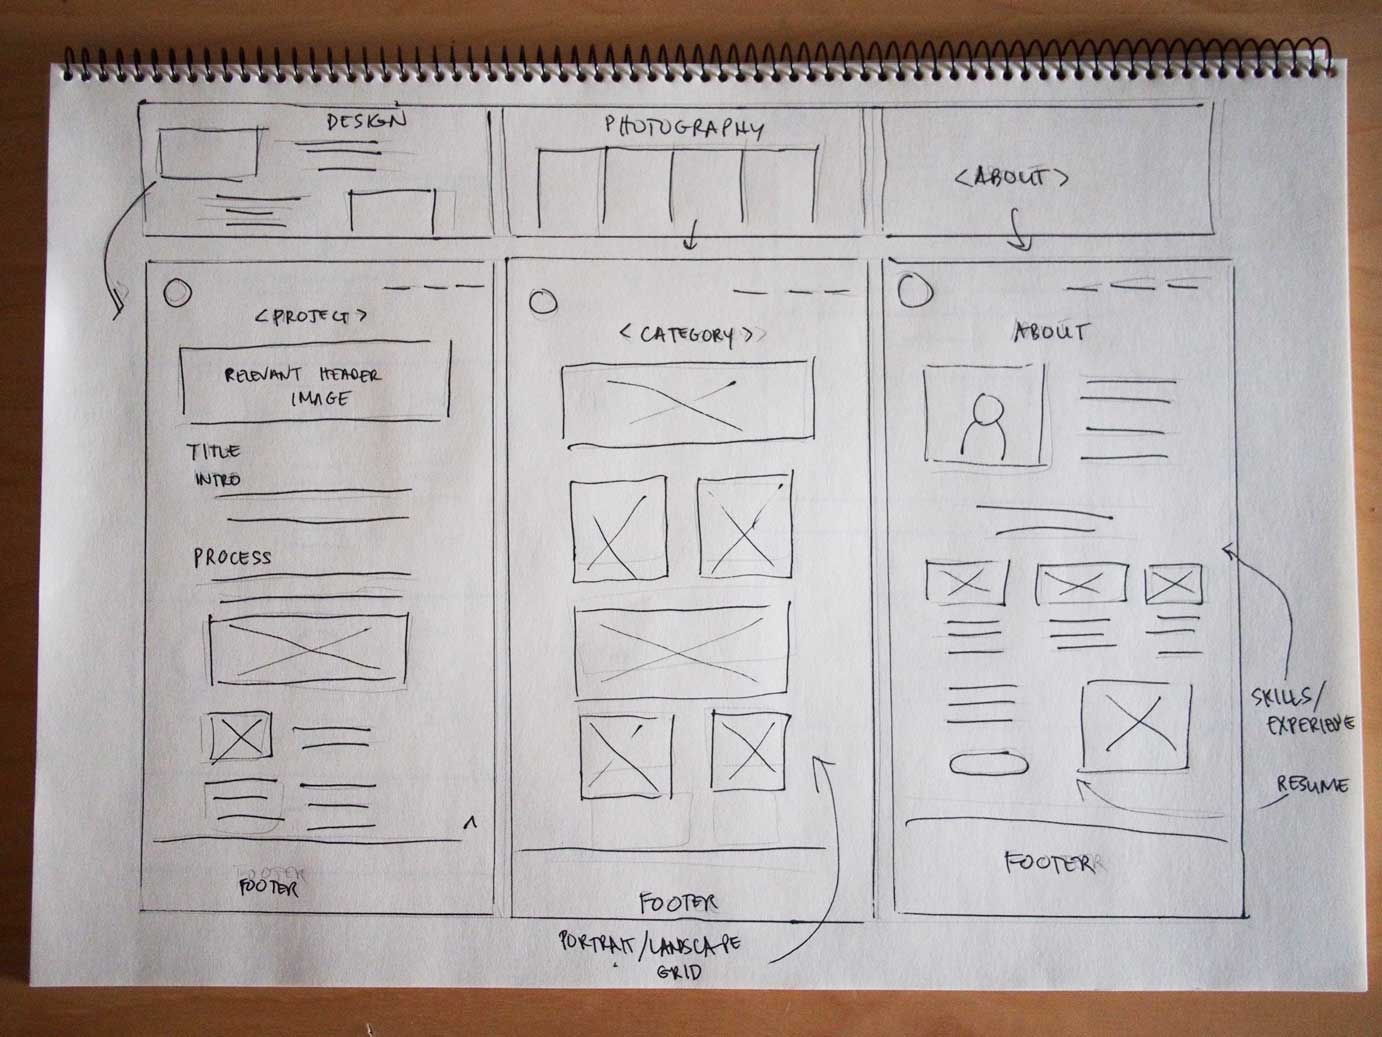 DESIGN
PHOTOGRAPHY
<ABOUT>
<PROJECT>
RELEVANT HEADER
IMAGE
TITLE
INTRO
PROCESS
FOOTER
<CATEGORY>
FOOTER
PORTRAIT/LANDSCAPE
GRID
ABOUT
SKILLS/
EXPERIENCE
RESUME
FOOTER